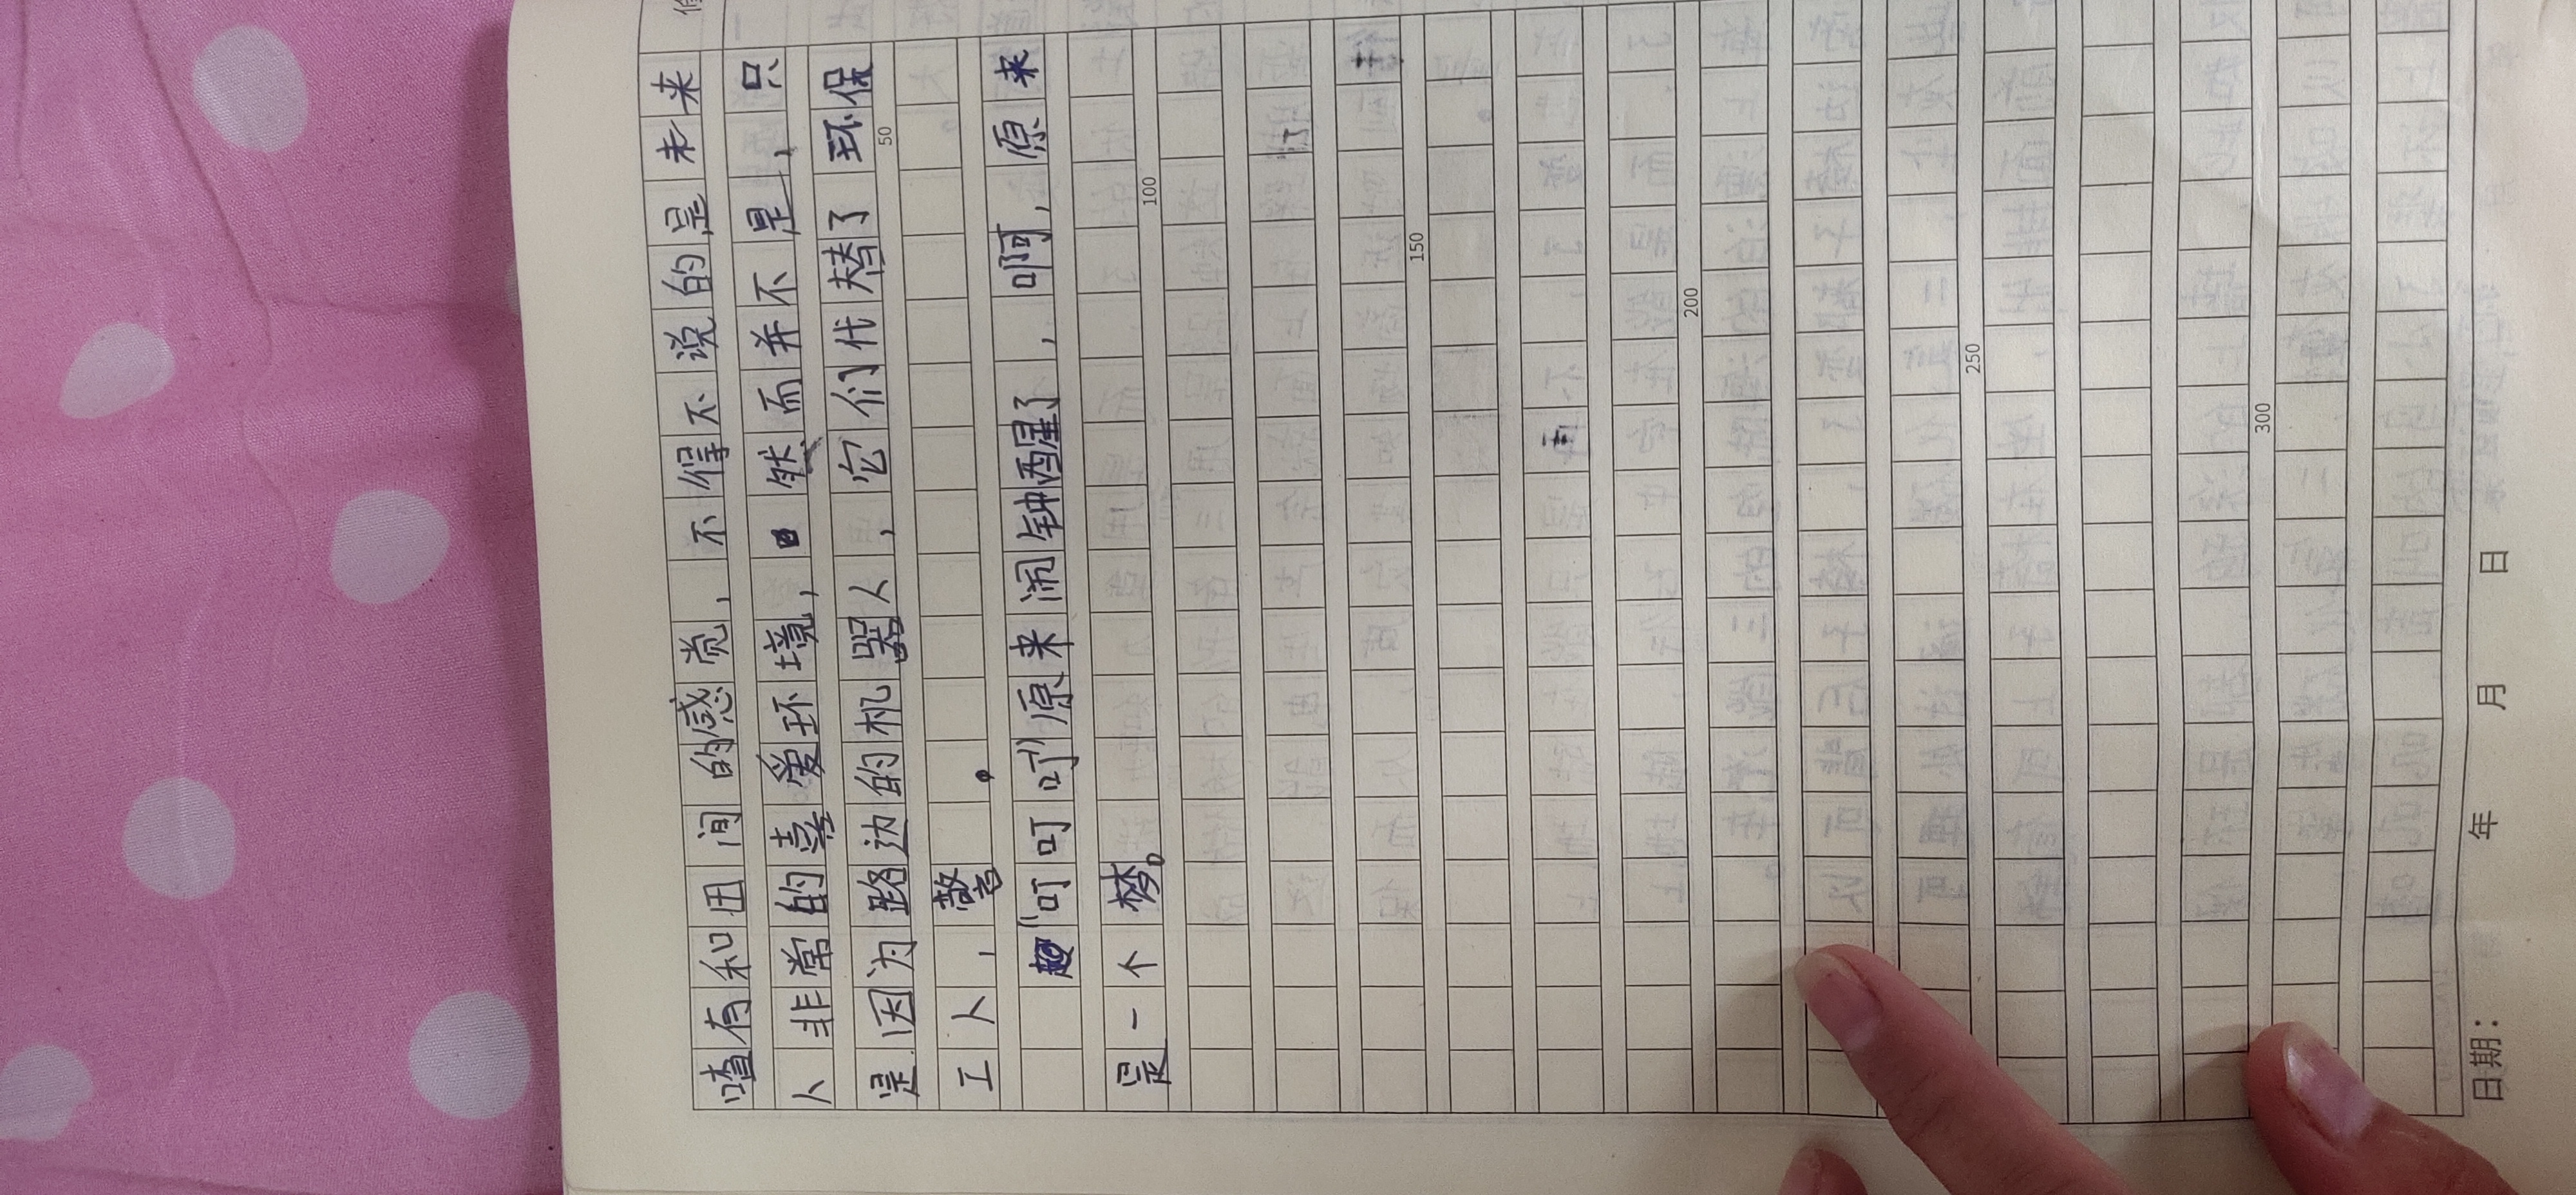 喳有和田间的感觉，不得不说的是未来
人非常的喜爱环境，然而并不是，只
是因为路边的机器人，它们代替了环保
工人，警。
“叮叮叮”原来闹钟醒了，啊，原来
是一个梦。
50
100
150
200
250
300
日期： 年 月 日